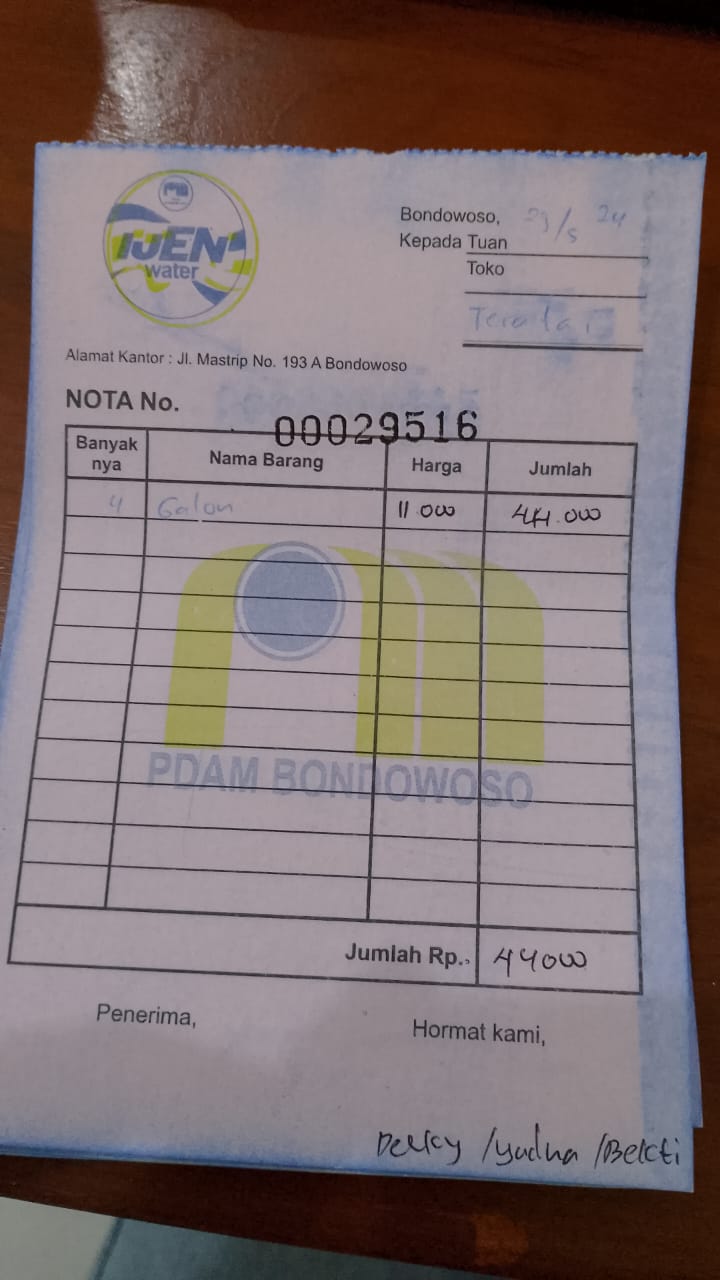 IJEN
water
Bondowoso, 29/5 24
Kepada Tuan
Toko
Teratai
Alamat Kantor : Jl. Mastrip No. 193 A Bondowoso
NOTA No. 00029516
Banyak nya Nama Barang Harga Jumlah
4 Galon 11.000 44.000
PDAM BONDOWOSO
Jumlah Rp. 44000
Penerima, Hormat kami,
/Yudha /Bekti